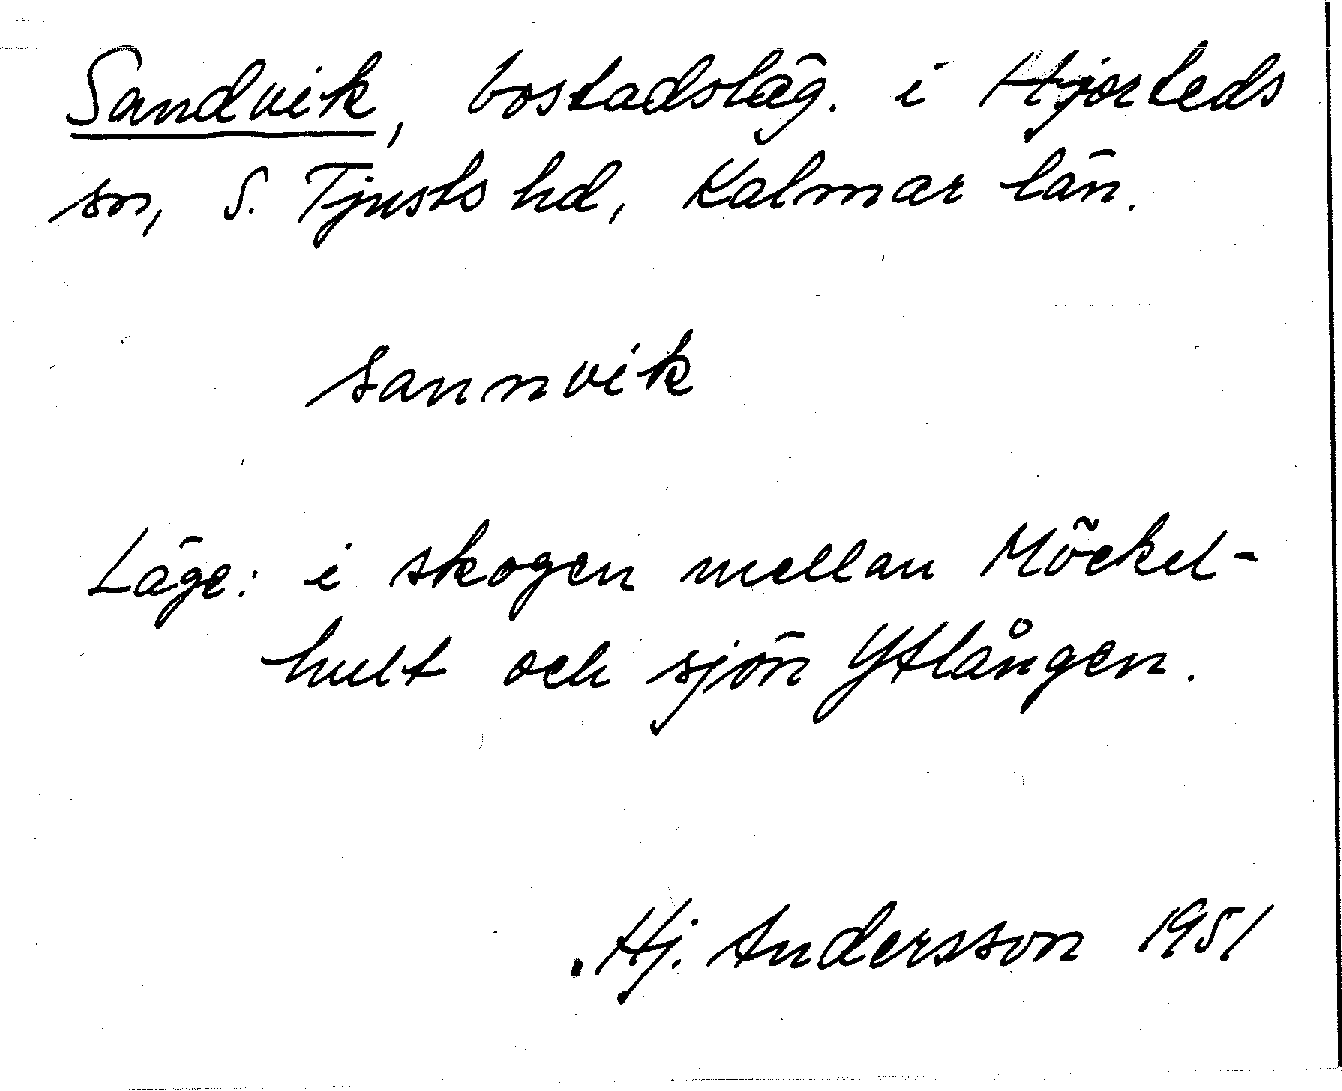 Sandvik, bostadsläg. i Hjorteds
sn, S. Tjusts hd, Kalmar län.
sannvik
Läge: i skogen mellan Möckel-
hult och sjön Ytlången.
Hj. Andersson 1951